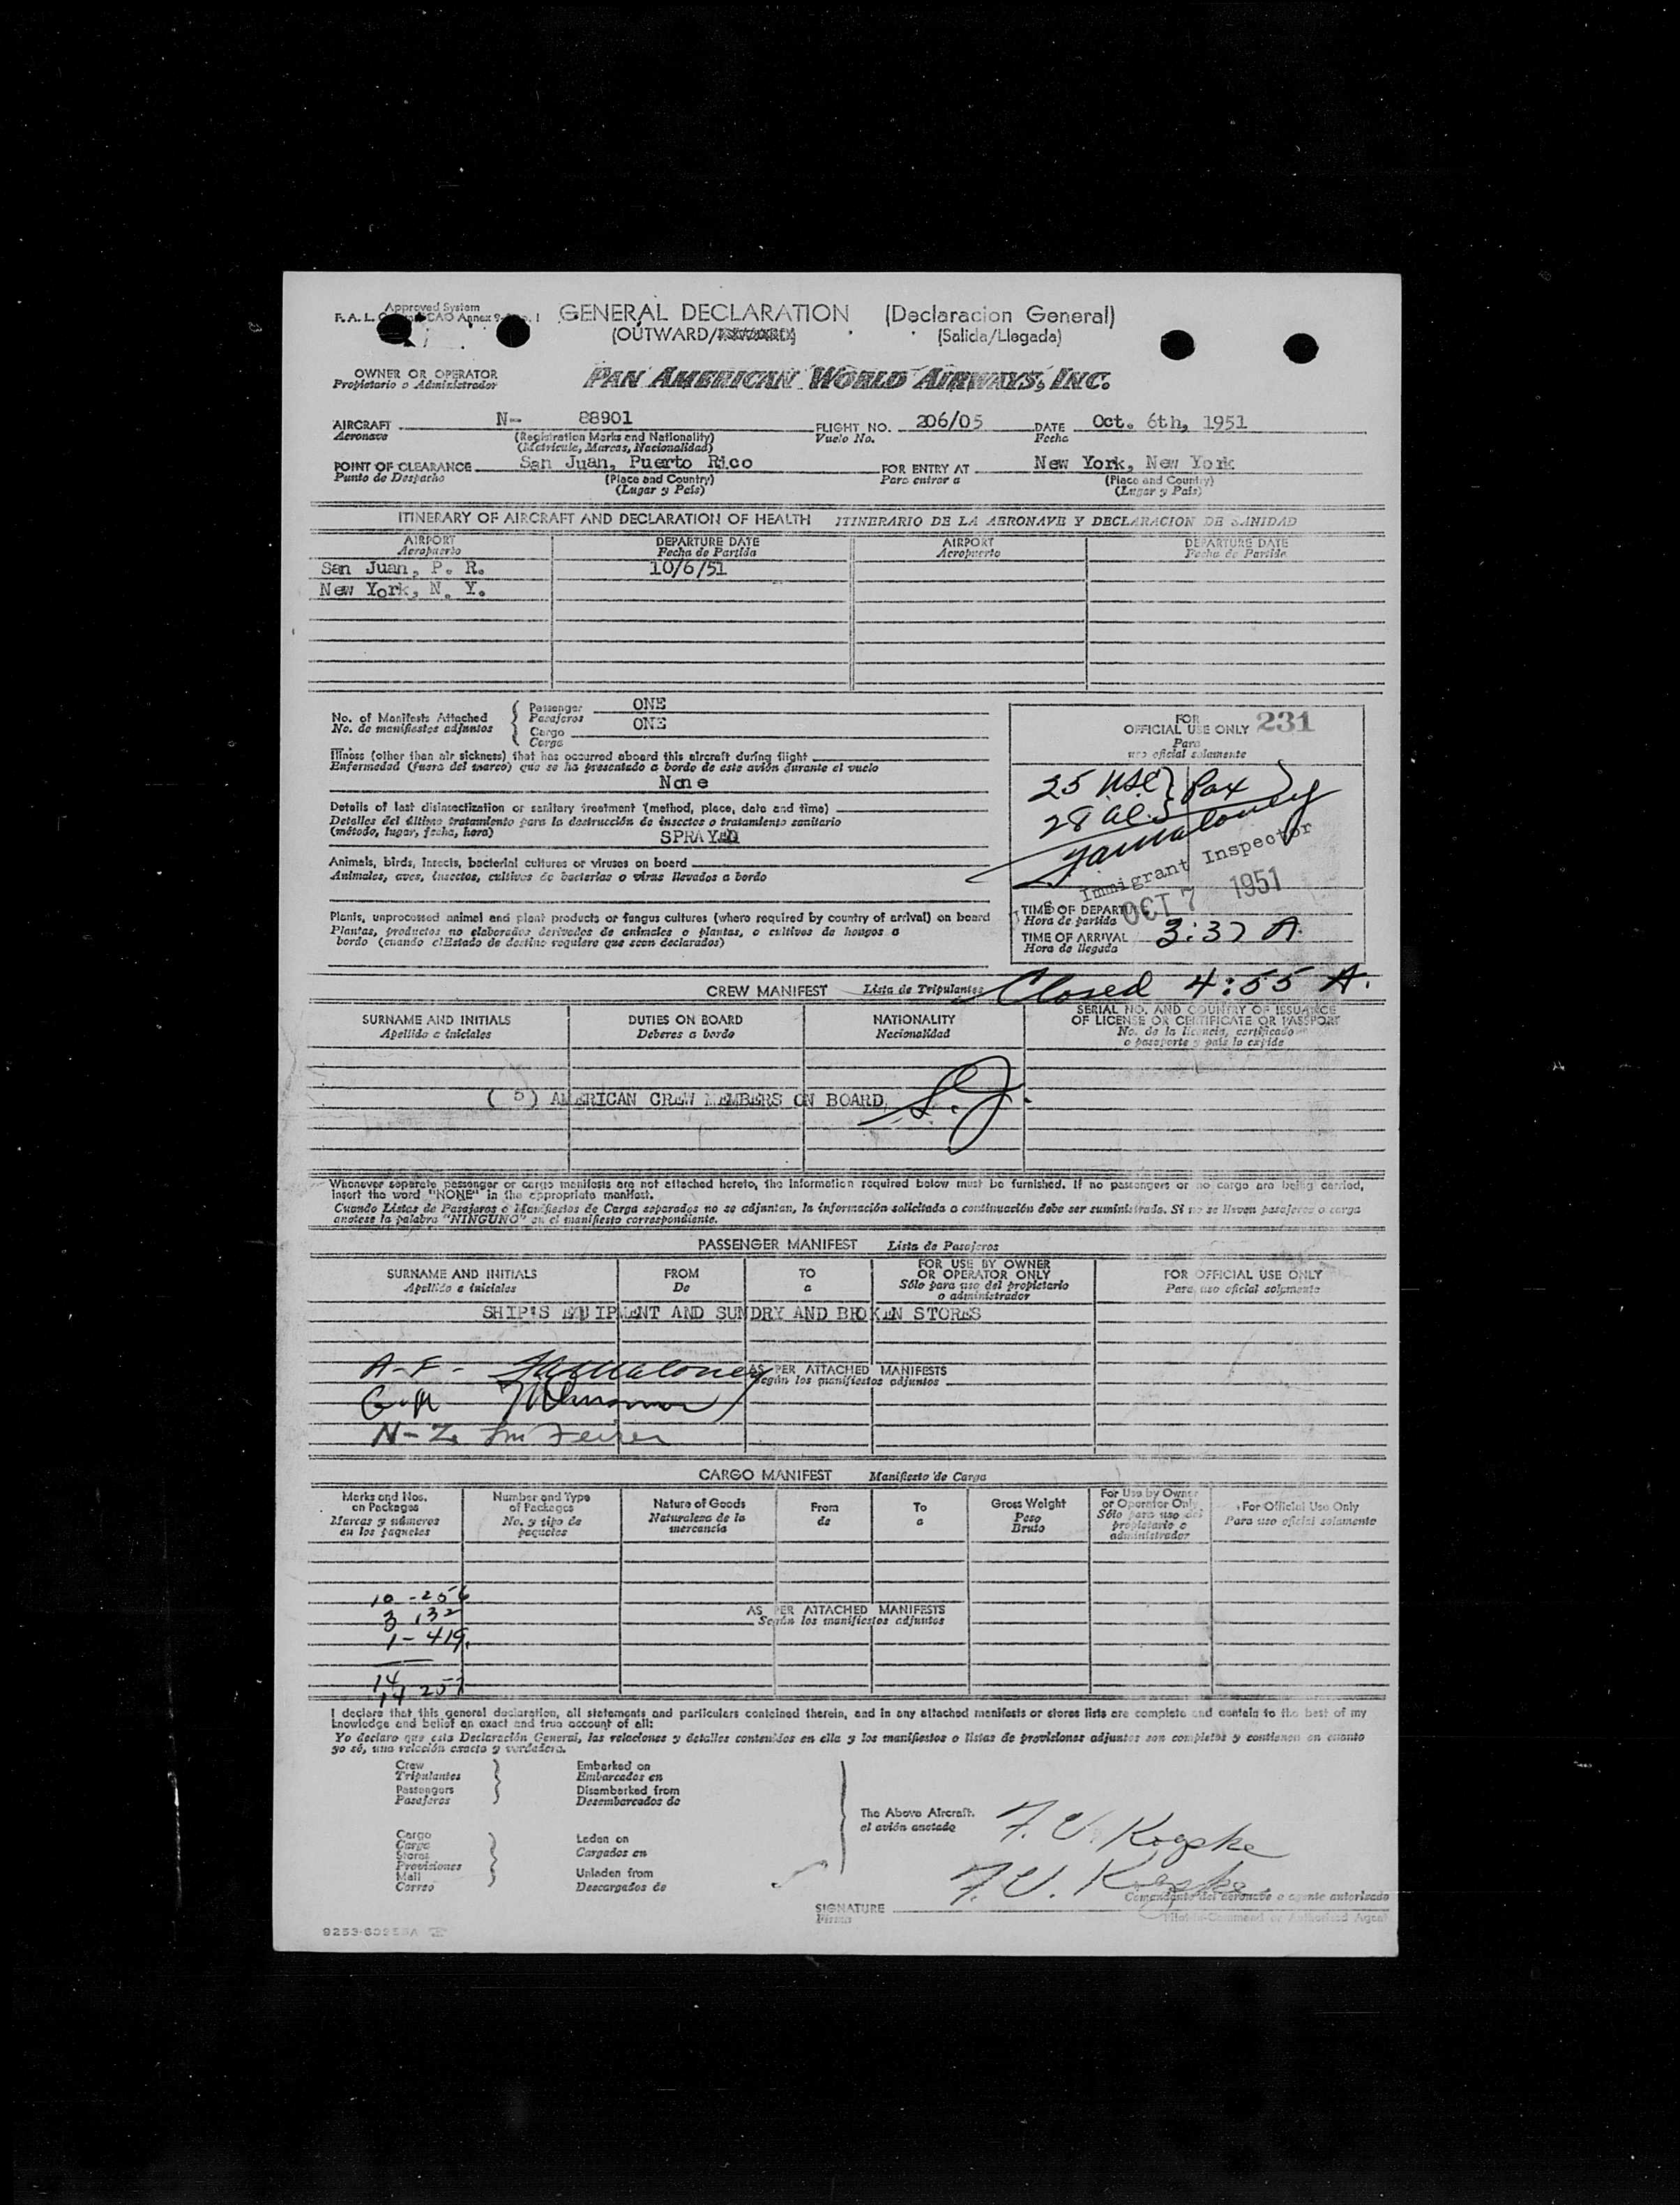 Approved System
GENERAL DECLARATION (Declaracion General)
(OUTWARD/ (Salida/Llegada)
OWNER OR OPERATOR
Propietario o Administrador
PAN AMERICAN WORLD AIRWAYS, INC.
AIRCRAFT N- 88901 FLIGHT NO. 206/05 DATE Oct. 6th, 1951
Aeronave (Registration Marks and Nationality) Vuelo No. Fecha
(Matricula, Marcas, Nacionalidad)
POINT OF CLEARANCE San Juan, Puerto Rico FOR ENTRY AT New York, New York
Punto de Despacho (Place and Country) Para entrar a (Place and Country)
(Lugar y País) (Lugar y País)
ITINERARY OF AIRCRAFT AND DECLARATION OF HEALTH ITINERARIO DE LA AERONAVE Y DECLARACION DE SANIDAD
AIRPORT DEPARTURE DATE AIRPORT DEPARTURE DATE
Aeropuerto Fecha de Partida Aeropuerto Fecha de Partida
San Juan, P. R. 10/6/51
New York, N. Y.
No. of Manifests Attached Passenger ONE
No. de manifiestos adjuntos Pasajeros
Cargo ONE
Carga
FOR
OFFICIAL USE ONLY 231
Para
uso oficial solamente
Illness (other than air sickness) that has occurred aboard this aircraft during flight
Enfermedad (fuera del mareo) que se ha presentado a bordo de este avión durante el vuelo
None
25 USC Pax
28 al.
Details of last disinsectization or sanitary treatment (method, place, date and time)
Detalles del último tratamiento para la destrucción de insectos o tratamiento sanitario
(método, lugar, fecha, hora) SPRAYED
Animals, birds, insects, bacterial cultures or viruses on board
Animales, aves, insectos, cultivos de bacterias o virus llevados a bordo
Immigrant Inspector
OCT 7 1951
Plants, unprocessed animal and plant products or fungus cultures (where required by country of arrival) on board
Plantas, productos no elaborados derivados de animales o plantas, o cultivos de hongos a
bordo (cuando el Estado de destino requiere que sean declarados)
TIME OF DEPART
Hora de partida
TIME OF ARRIVAL 3:37 A.
Hora de llegada
CREW MANIFEST Lista de Tripulantes Closed 4:55 A.
SURNAME AND INITIALS DUTIES ON BOARD NATIONALITY SERIAL NO. AND COUNTRY OF ISSUANCE
Apellido e iniciales Deberes a bordo Nacionalidad OF LICENSE OR CERTIFICATE OR PASSPORT
No. de la licencia, certificado
o pasaporte y país lo expide
( 5 ) AMERICAN CREW MEMBERS ON BOARD
Whenever separate passenger or cargo manifests are not attached hereto, the information required below must be furnished. If no passengers or no cargo are being carried,
insert the word "NONE" in the appropriate manifest.
Cuando Listas de Pasajeros o Manifiestos de Carga separados no se adjuntan, la información solicitada a continuación debe ser suministrada. Si no se llevan pasajeros o carga
anotese la palabra "NINGUNO" en el manifiesto correspondiente.
PASSENGER MANIFEST Lista de Pasajeros
SURNAME AND INITIALS FROM TO FOR USE BY OWNER OR OPERATOR ONLY FOR OFFICIAL USE ONLY
Apellido e iniciales De a Sólo para uso del propietario o administrador Para uso oficial solamente
SHIP'S EQUIPMENT AND SUNDRY AND BROKEN STORES
AS PER ATTACHED MANIFESTS
Según los manifiestos adjuntos
CARGO MANIFEST Manifiesto de Carga
Marks and Nos. on Packages Number and Type of Packages Nature of Goods From To Gross Weight For Use by Owner or Operator Only For Official Use Only
Marcas y números en los paquetes No. y tipo de paquetes Naturaleza de la mercancia de a Peso Bruto Sólo para uso del propietario o administrador Para uso oficial solamente
10 - 256
3 132
1 - 419
AS PER ATTACHED MANIFESTS
Según los manifiestos adjuntos
14
I declare that this general declaration, all statements and particulars contained therein, and in any attached manifests or stores lists are complete and contain to the best of my
knowledge and belief an exact and true account of all:
Yo declaro que esta Declaración General, las relaciones y detalles contenidos en ella y los manifiestos o listas de provisiones adjuntos son completos y contienen en cuanto
yo sé, una relación exacta y verdadera.
Crew Embarked on
Tripulantes Embarcados en
Passengers Disembarked from
Pasajeros Desembarcados de
The Above Aircraft.
el avión anotado
F. V. Koepke
Cargo Laden on
Carga Cargados en
Stores
Provisiones
Mail Unladen from
Correo Descargados de
F. V. Koepke
Comandante del aeronave o agente autorizado
SIGNATURE
Firma
Pilot-in-Command or Authorized Agent